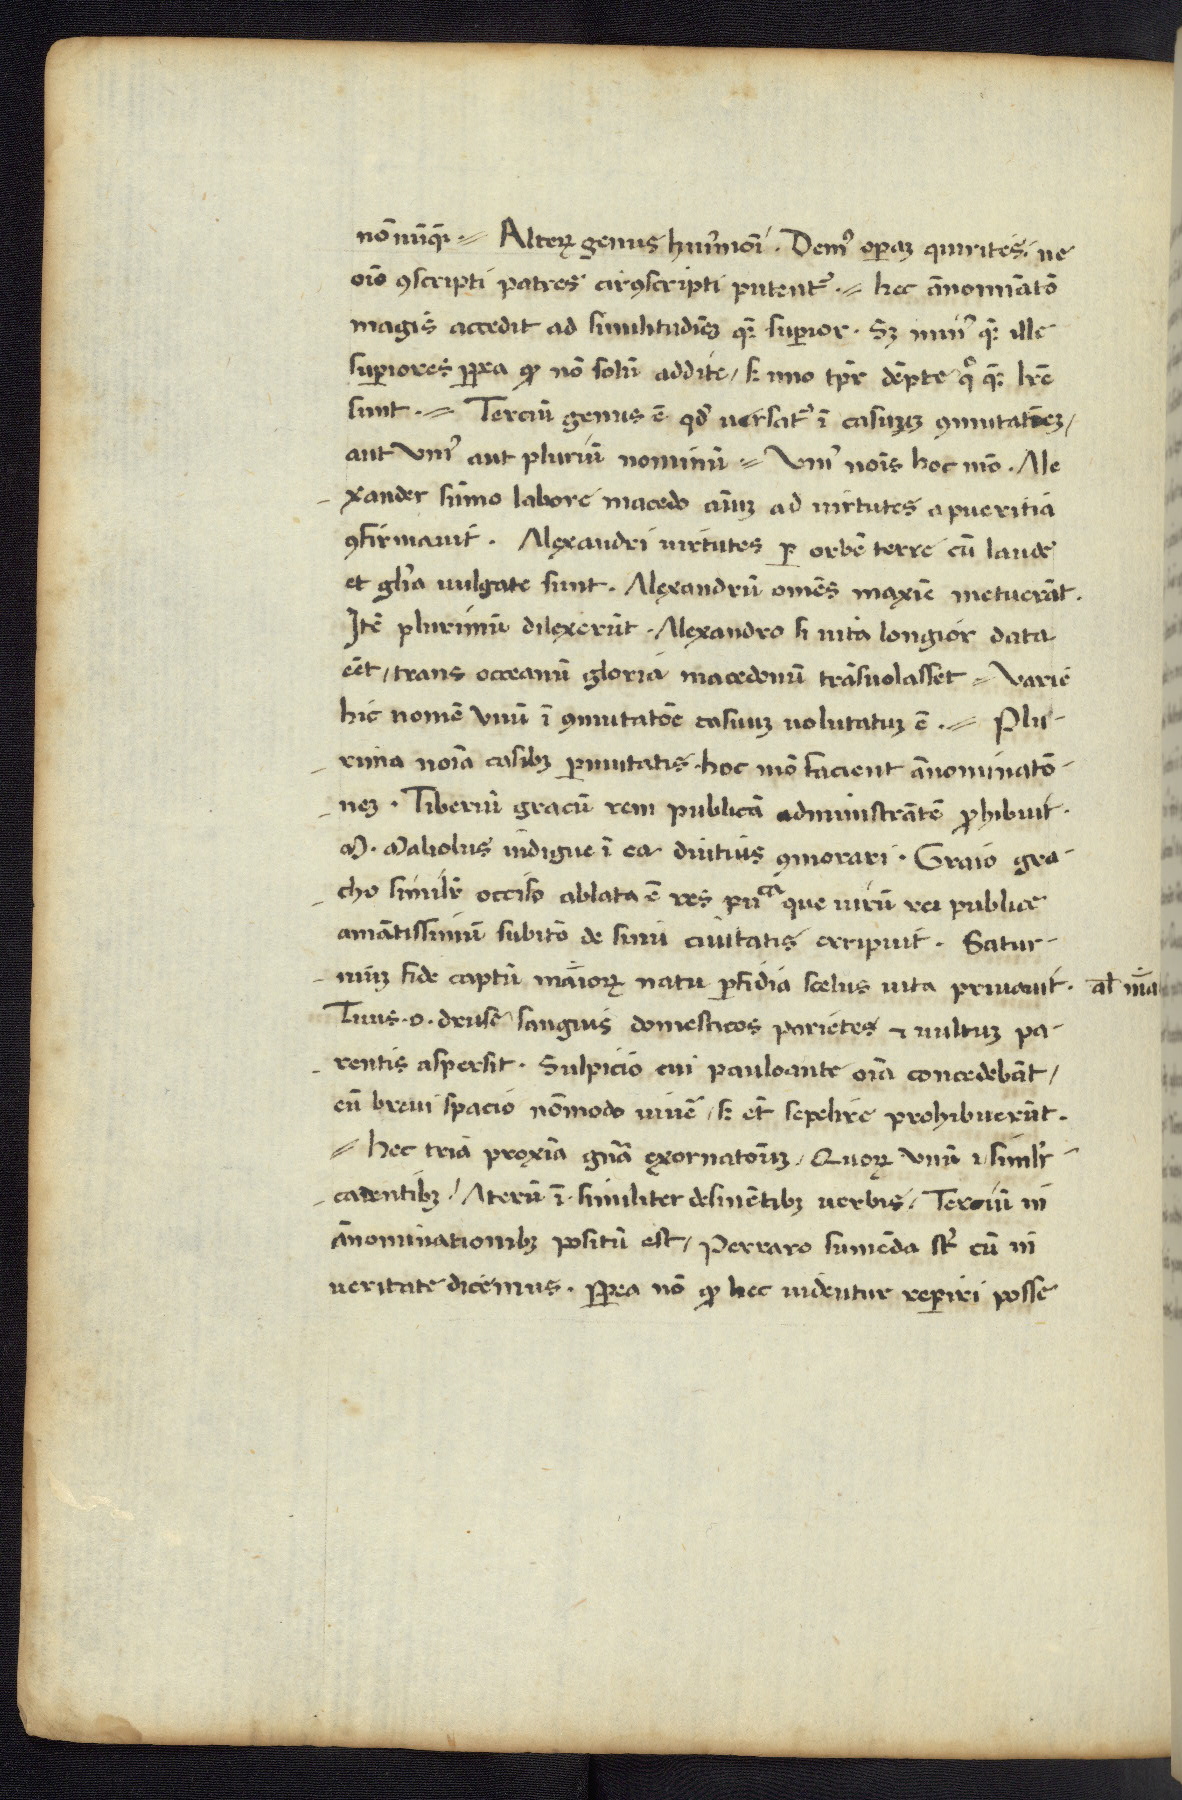 nōnūq̄ꝫ · // Alterꝝ genus huiꝰmōi . Demꝰ oꝑaꝫ quirites / ne
oīo ꝯscripti patres circūꝯscripti putentᷣ · // hec ānomīatō
magis accedit ad similitudīeꝫ q̄ꝫ suꝑior . Sꝫ minꝰ q̄ꝫ ille
suꝑiores ꝓpea qꝛ nō solū addite / sꝫ uno tꝑe dēpte qͦq̄ꝫ lr̄e
sunt · // Terciū genus ē qd' uersatᷣ ī casuuꝫ ꝯmutatōeꝫ /
aut Vniꝰ aut pluriū nominū // Vniꝰ noīs hoc mō . Ale
xander sūmo labore macedo aīuꝫ ad uirtutes a pueritia
ꝯfirmauit . Alexandri uirtutes ꝑ orbē terre cū laude
et glīa uulgate sunt . Alexandrū omēs maxīe metuerāt .
Itē plurimū dilexerūt . Alexandro si uita longior data
eēt / trans occeanū gloria macedonū trāsuolasset // Varie
hic nomē Vnū ī ꝯmutatōe casuuꝫ uolutatuꝫ ē · // Plu-
rima noīa casibꝫ ꝑmutatis hoc mō facient ānominatō-
neꝫ . Tiberiū gracū rem publicā administrātē ꝓhibuit .
M . Maliolus indigne ī ea diutius ꝯmorari . Graio gra-
cho similr̄ occiso ablata ē res pūca que uirū rei publice
amātissimū subito de sinu ciuitatis eripuit . Satur-
niuꝫ fide captū maiorꝝ natu ꝑfidia scelus uita priuauit . al' mᵃ
Tuus . o . druse sanguis domesticos parietes ⁊ uultuꝫ pa-
rentis aspersit . Sulpicio cui pauloante oīa concedebāt /
eū breui spacio nōmodo uiuē / sꝫ et sepelire prohibuerūt .
// hec tria proxīa gn̄a exornatōnuꝫ / Quorꝝ Vnū ī similr̄
cadentibꝫ / Aterū ī similiter desinētibꝫ uerbis / Terciū in
ānominationibꝫ positū est / Perraro sumēda sᷣt cū in
ueritate dicemus . ꝓpea nō qꝛ hec uidentur reꝑiri posse